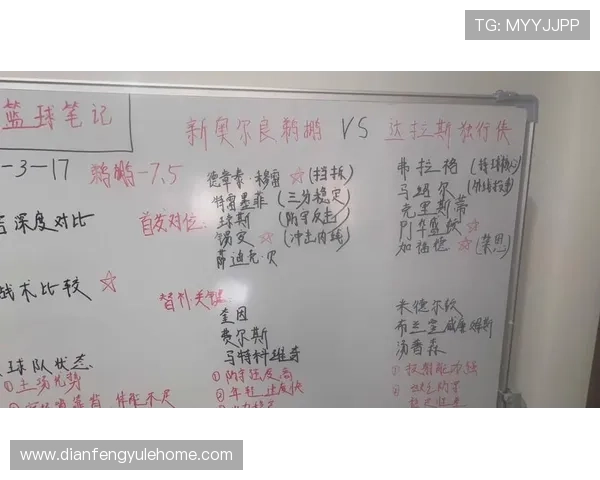 TG: MYYJJPP
篮球笔记
新奥尔良鹈鹕 VS 达拉斯独行侠
-3-17 鹈鹕-7.5
深度对比
战术比较 ☆
球队状态
①主场优势
首发对位:
德章泰·穆雷 ☆ (挡拆)
特雷墨菲 (三分稳定)
琼斯 (防守反击)
锡安 ☆ (冲击内线)
萨迪克·贝
弗拉格 (持球核心)
马绍尔
克里斯蒂
华盛顿 ☆
加福德 (禁恩)
替补关键:
奎因
费尔斯
马特科维奇
①防守强度高
②年轻 速度快
米德尔顿
布兰登威廉姆斯
汤普森
①投射能力强
www.dianfengyulehome.com